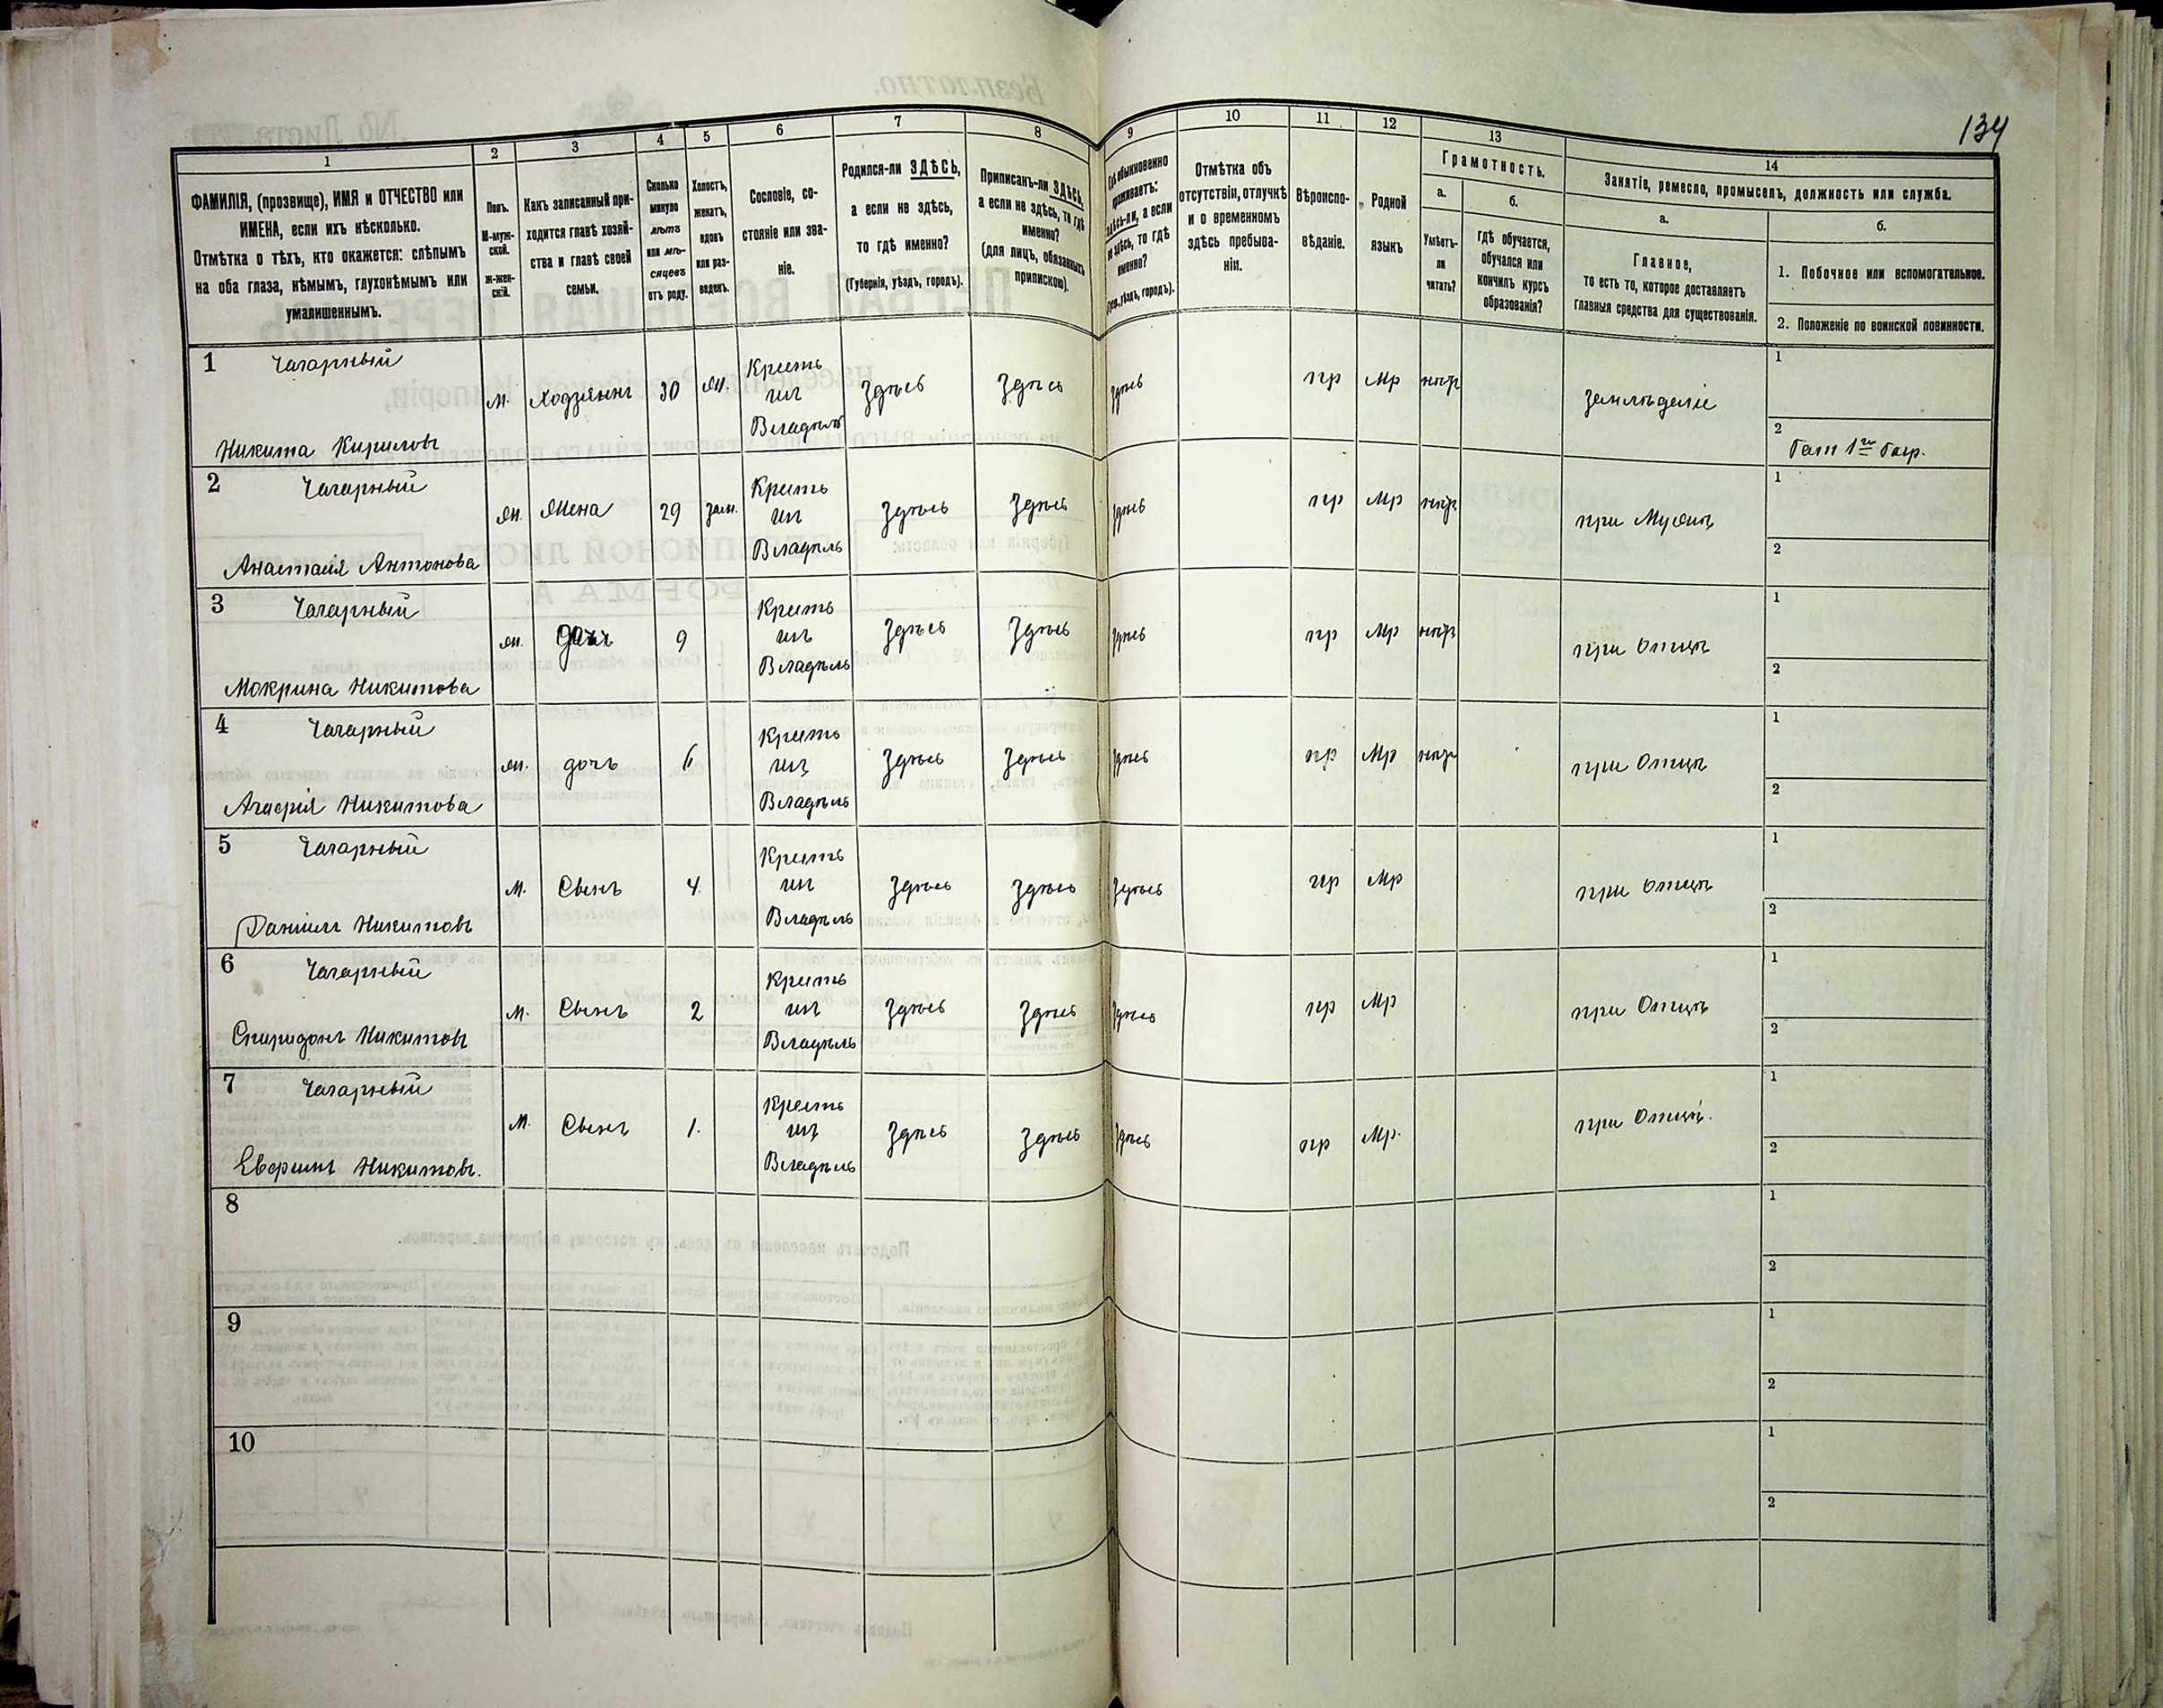 134
1
2
3
4
5
6
7
8
9
10
11
12
13
14
ФАМИЛІЯ, (прозвище), ИМЯ и ОТЧЕСТВО или
ИМЕНА, если ихъ нѣсколько.
Отмѣтка о тѣхъ, кто окажется: слѣпымъ
на оба глаза, нѣмымъ, глухонѣмымъ или
умалишеннымъ.
Полъ.
М-муж-
ской.
Ж-жен-
скій.
Какъ записанный при-
ходится главѣ хозяй-
ства и главѣ своей
семьи.
Сколько
минуло
лѣтъ
или мѣ-
сяцевъ
отъ роду.
Холостъ,
женатъ,
вдовъ
или раз-
веденъ.
Сословіе, со-
стояніе или зва-
ніе.
Родился-ли ЗДѢСЬ,
а если не здѣсь,
то гдѣ именно?
(Губернія, уѣздъ, городъ).
Приписанъ-ли ЗДѢСЬ,
а если не здѣсь, то гдѣ
именно?
(для лицъ, обязанныхъ
припискою).
Гдѣ обыкновенно
проживаетъ:
здѣсь-ли, а если
не здѣсь, то гдѣ
именно?
(Губ., уѣздъ, городъ).
Отмѣтка объ
отсутствіи, отлучкѣ
и о временномъ
здѣсь пребыва-
ніи.
Вѣроиспо-
вѣданіе.
Родной
языкъ
Грамотность.
а.
Умѣетъ-
ли
читать?
б.
гдѣ обучается,
обучался или
кончилъ курсъ
образованія?
Занятіе, ремесло, промыселъ, должность или служба.
а.
Главное,
то есть то, которое доставляетъ
главныя средства для существованія.
б.
1. Побочное или вспомогательное.
2. Положеніе по воинской повинности.
1 Чагарный
Никита Кириловъ
м. Ходзяинъ 30 жн.
Крестъ
инъ
Владѣль
Здѣсь Здѣсь здѣсь пр Мр нѣтъ земледеліе
1
2
Рат 1го Разр.
2 Чагарный
Анастасія Антонова
жн. Жена 29 зам.
Крестъ
ин
Владѣль
Здѣсь Здѣсь здѣсь пр Мр нѣтъ при Мужѣ
1
2
3 Чагарный
Мокрина Никитова
жн. дочь 9
Крестъ
инъ
Владѣль
Здѣсь Здѣсь здѣсь пр Мр нѣтъ при Отцѣ
1
2
4 Чагарный
Агафія Никитова
жн. дочь 6
Крестъ
инъ
Владѣль
Здѣсь Здѣсь здѣсь пр Мр нѣтъ при Отцѣ
1
2
5 Чагарный
Даніилъ Никитовъ
м. Сынъ 4.
Крестъ
ин
Владѣль
Здѣсь Здѣсь Здѣсь пр Мр при Отцѣ
1
2
6 Чагарный
Спиридонъ Никитовъ
м. Сынъ 2
Крестъ
инъ
Владѣль
Здѣсь Здѣсь Здѣсь пр Мр при Отцѣ
1
2
7 Чагарный
Ефримъ Никитовъ.
м. Сынъ 1.
Крестъ
инъ
Владѣль
Здѣсь Здѣсь Здѣсь пр Мр. при Отцѣ.
1
2
8
1
2
9
1
2
10
1
2